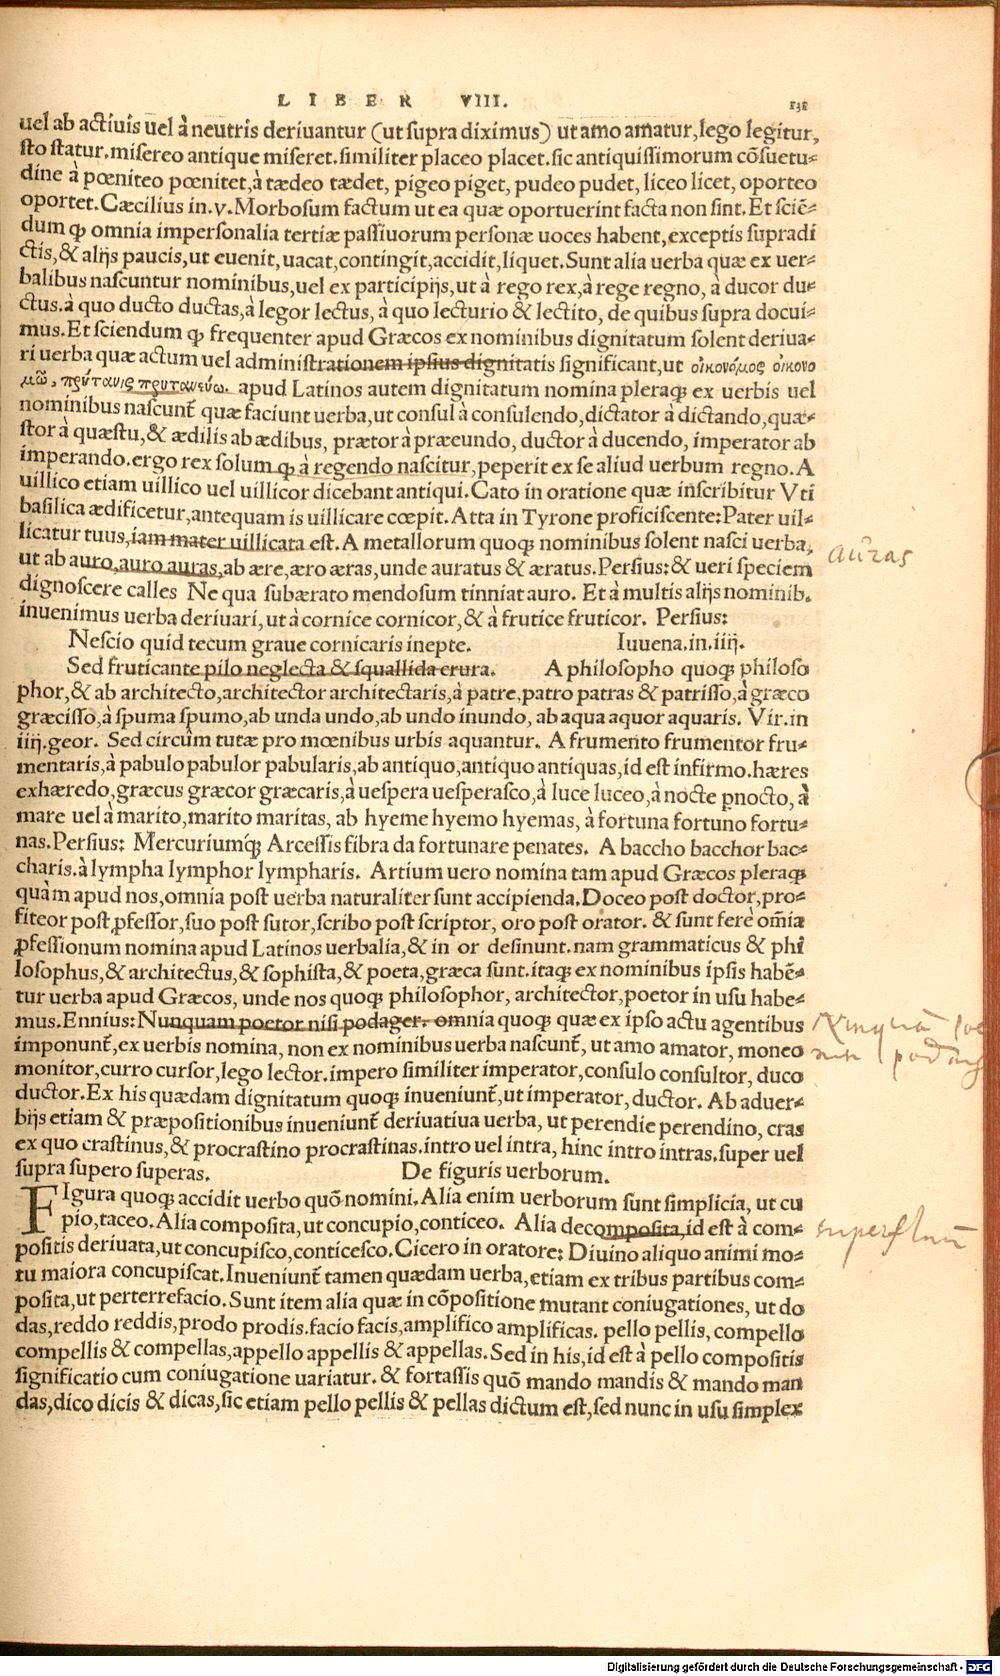 LIBER VIII.
uel ab actiuis uel à neutris deriuantur (ut supra diximus) ut amo amatur, lego legitur,
sto statur. misereo antique miseret. similiter placeo placet. sic antiquissimorum cõsuetu-
dine à pœniteo pœnitet, à tædeo tædet, pigeo piget, pudeo pudet, liceo licet, oporteo
oportet. Cæcilius in. v. Morbosum factum ut ea quæ oportuerint facta non sint. Et sciẽ-
dum ꝙ omnia impersonalia tertiæ passiuorum personæ uoces habent, exceptis supradi
ctis, & alijs paucis, ut euenit, uacat, contingit, accidit, liquet. Sunt alia uerba quæ ex uer-
balibus nascuntur nominibus, uel ex participijs, ut à rego rex, à rege regno, à ducor du-
ctus. à quo ducto ductas, à legor lectus, à quo lecturio & lectito, de quibus supra docui-
mus. Et sciendum ꝙ frequenter apud Græcos ex nominibus dignitatum solent deriua-
ri uerba quæ actum uel administrationem ipsius dignitatis significant, ut οἰκονόμος οἰκονο
μῶ, πρύτανις πρυτανεύω. apud Latinos autem dignitatum nomina pleraqꝫ ex uerbis uel
nominibus nascunt̃ quæ faciunt uerba, ut consul à consulendo, dictator à dictando, quæ-
stor à quæstu, & ædilis ab ædibus, prætor à præeundo, ductor à ducendo, imperator ab
imperando. ergo rex solum ꝙ à regendo nascitur, peperit ex se aliud uerbum regno. A
uillico etiam uillico uel uillicor dicebant antiqui. Cato in oratione quæ inscribitur Vti
basilica ædificetur, antequam is uillicare cœpit. Atta in Tyrone proficiscente: Pater uil-
licatur tuus, iam mater uillicata est. A metallorum quoqꝫ nominibus solent nasci uerba,
ut ab auro, auro auras, ab ære, æro æras, unde auratus & æratus. Persius: & ueri speciem
auras
dignoscere calles Ne qua subærato mendosum tinniat auro. Et à multis alijs nominib.
inuenimus uerba deriuari, ut à cornice cornicor, & à frutice fruticor. Persius:
Nescio quid tecum graue cornicaris inepte. Iuuena. in. iiij.
Sed fruticante pilo neglecta & squallida crura. A philosopho quoqꝫ philoso
phor, & ab architecto, architector architectaris, à patre. patro patras & patrisso, à græco
græcisso, à spuma spumo, ab unda undo, ab undo inundo, ab aqua aquor aquaris. Vir. in
iiij. geor. Sed circũm tutæ pro mœnibus urbis aquantur. A frumento frumentor fru-
mentaris, à pabulo pabulor pabularis, ab antiquo, antiquo antiquas, id est infirmo. hæres
exhæredo, græcus græcor græcaris, à uespera uesperasco, à luce luceo, à nocte pnocto, à
mare uel à marito, marito maritas, ab hyeme hyemo hyemas, à fortuna fortuno fortu-
nas. Persius: Mercuriumq́ꝫ Arcessis fibra da fortunare penates. A baccho bacchor bac-
charis. à lympha lymphor lympharis. Artium uero nomina tam apud Græcos pleraqꝫ
quàm apud nos, omnia post uerba naturaliter sunt accipienda. Doceo post doctor, pro-
fiteor post ꝓfessor, suo post sutor, scribo post scriptor, oro post orator. & sunt ferè om̃ia
ꝓfessionum nomina apud Latinos uerbalia, & in or desinunt. nam grammaticus & phi
losophus, & architectus, & sophista, & poeta, græca sunt. itaqꝫ ex nominibus ipsis habẽ-
tur uerba apud Græcos, unde nos quoqꝫ philosophor, architector, poetor in usu habe-
mus. Ennius: Nunquam poetor nisi podager. omnia quoqꝫ quæ ex ipso actu agentibus
imponunt̃, ex uerbis nomina, non ex nominibus uerba nascunt̃, ut amo amator, moneo
monitor, curro cursor, lego lector. impero similiter imperator, consulo consultor, duco
ductor. Ex his quædam dignitatum quoqꝫ inueniunt̃, ut imperator, ductor. Ab aduer-
bijs etiam & præpositionibus inueniunt̃ deriuatiua uerba, ut perendie perendino, cras
ex quo crastinus, & procrastino procrastinas. intro uel intra, hinc intro intras. super uel
supra supero superas. De figuris uerborum.
FIgura quoqꝫ accidit uerbo quõ nomini. Alia enim uerborum sunt simplicia, ut cu
pio, taceo. Alia composita, ut concupio, conticeo. Alia decomposita, id est à com-
positis deriuata, ut concupisco, conticesco. Cicero in oratore: Diuino aliquo animi mo-
tu maiora concupiscat. Inueniunt̃ tamen quædam uerba, etiam ex tribus partibus com-
posita, ut perterrefacio. Sunt item alia quæ in cõpositione mutant coniugationes, ut do
das, reddo reddis, prodo prodis. facio facis, amplifico amplificas. pello pellis, compello
compellis & compellas, appello appellis & appellas. Sed in his, id est à pello compositis
significatio cum coniugatione uariatur. & fortassis quõ mando mandis & mando man
das, dico dicis & dicas, sic etiam pello pellis & pellas dictum est, sed nunc in usu simplex
Digitalisierung gefördert durch die Deutsche Forschungsgemeinschaft - DFG